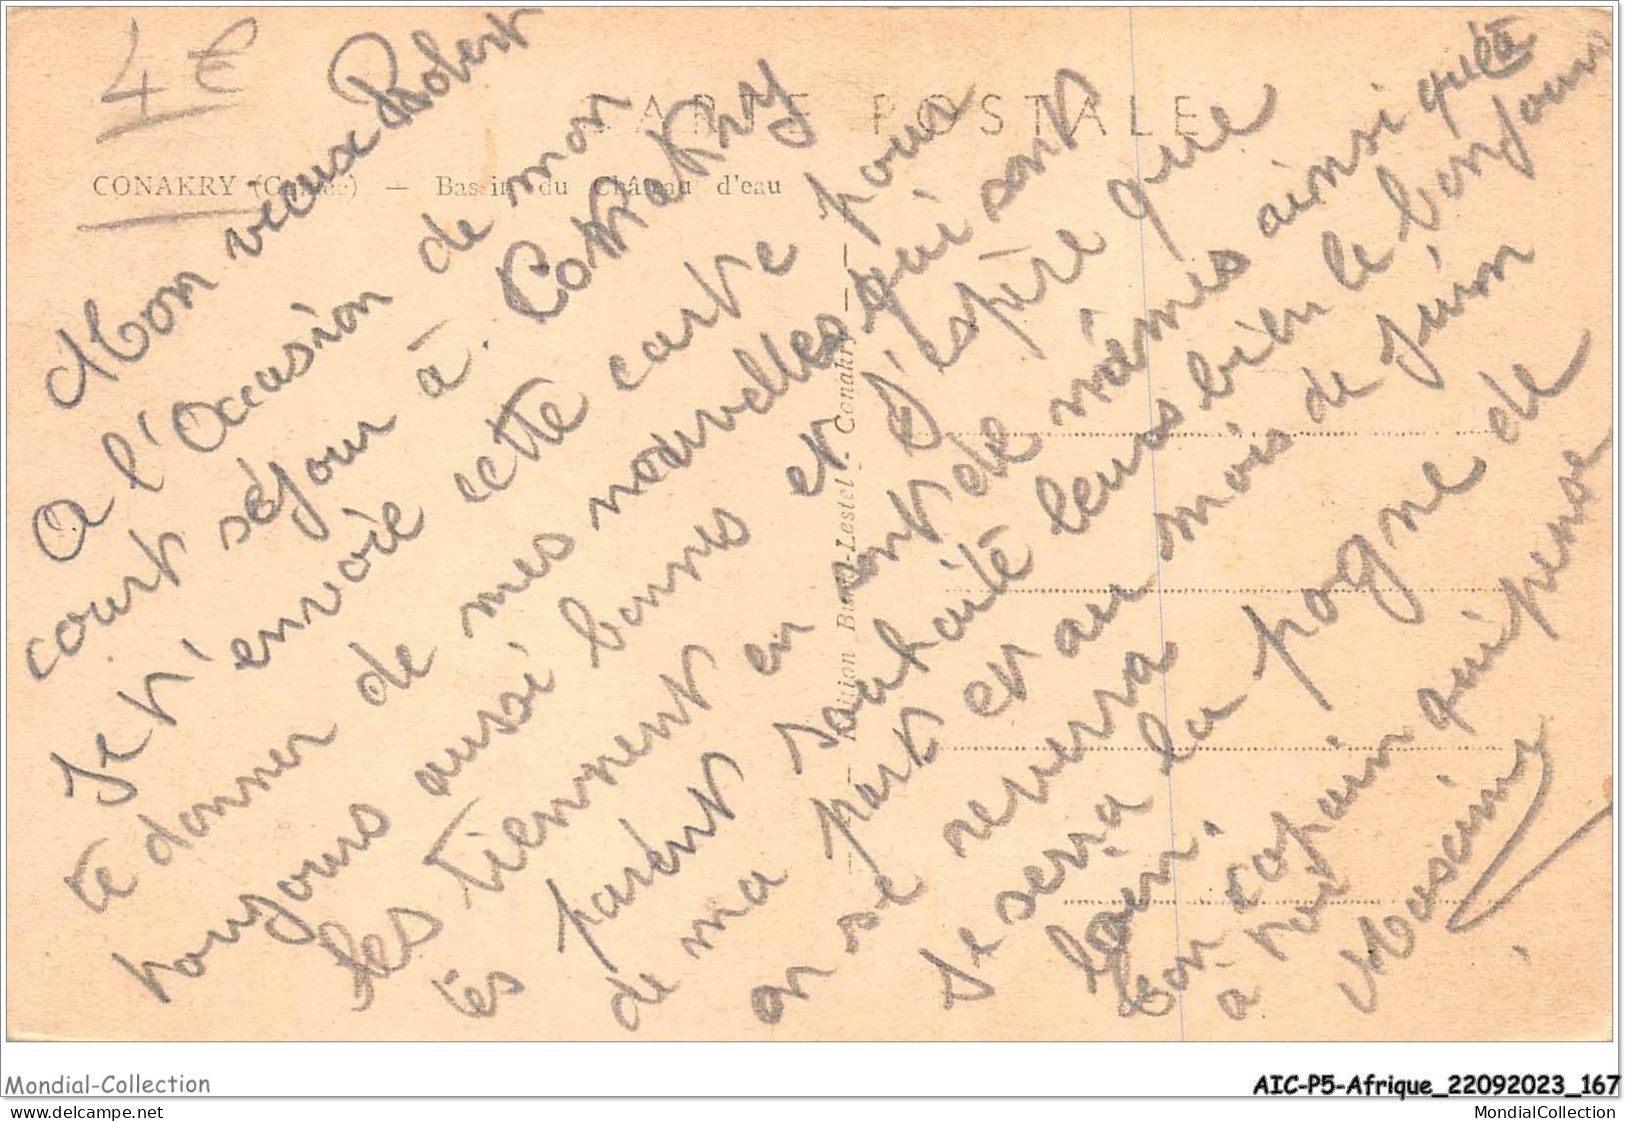 4€
CARTE POSTALE
CONAKRY (Guinée) — Bassin du Château d'eau
Edition Lestel - Conakry
Mon vieux Robert
A l'Occasion de mon
court séjour à Conakry
Je t'envoie cette carte pour
te donner de mes nouvelles qui sont
toujours aussi bonnes et J'espère que
les tiennent en sont de mêmes ainsi qu'à
tes parent souhaité leurs bien le bonjour
de ma part et au mois de Juin
on se reverra
Je serra la pogne de
loin.
Ton copain qui pense
à toi
Mondial-Collection
AIC-P5-Afrique_22092023_167
www.delcampe.net
MondialCollection